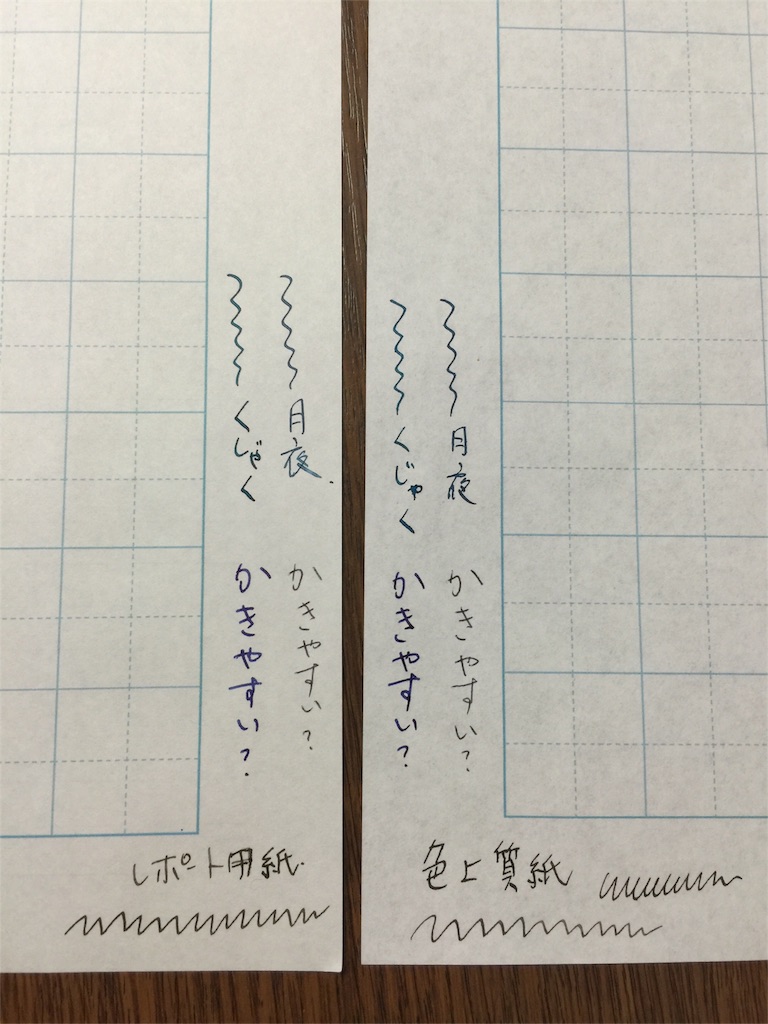 月夜
くじゃく
かきやすい?
かきやすい?
レポート用紙
月夜
くじゃく
かきやすい?
かきやすい?
色上質紙